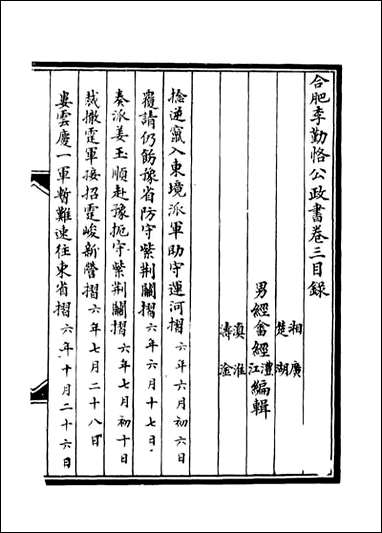 合肥李勤恪公政書卷三目録
湘廣
楚湖
男經畬經澧江編輯
滇淮
濤淦
捻逆竄入東境派軍助守運河摺 六年六月初六日
覆請仍飭豫省防守紫荆關摺 六年六月十七日
奏派姜玉順赴豫扼守紫荆關摺 六年七月初十日
裁撤霆軍接招霆峻新營摺 六年七月二十八日
婁雲慶一軍暫難速往東省摺 六年十月二十六日